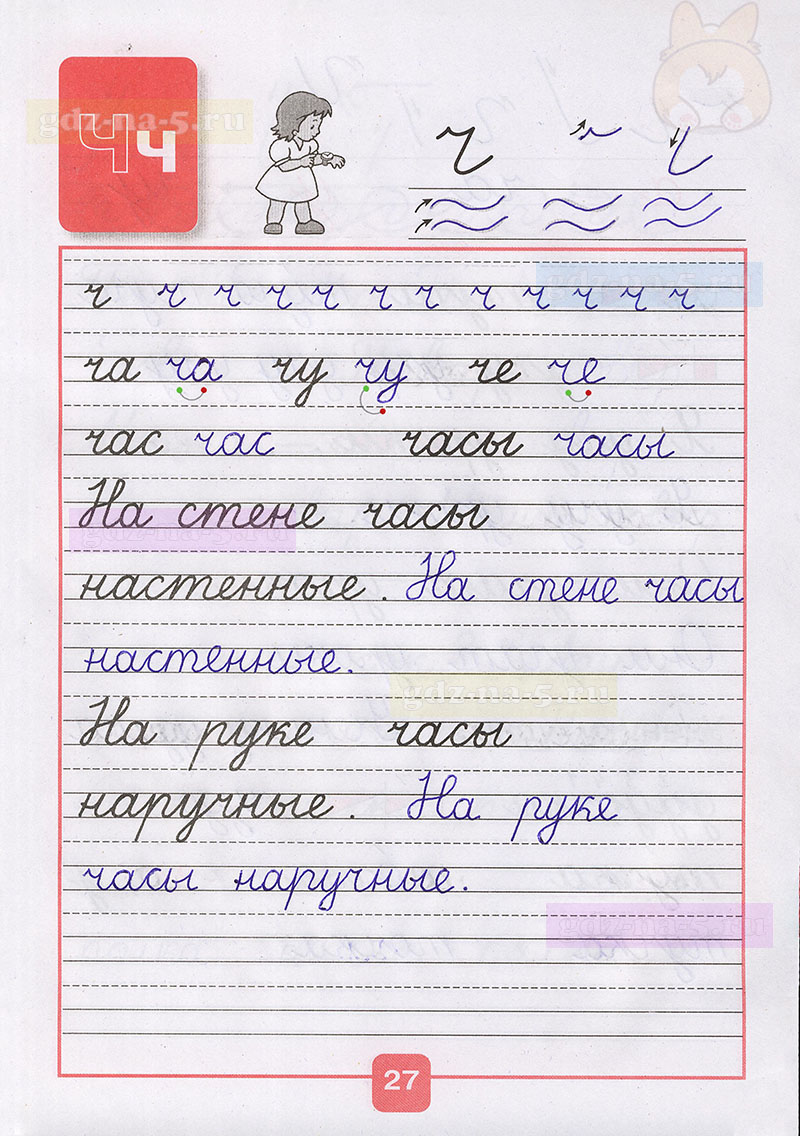 gdz-na-5.ru
Ч ч
ч
ч ч ч ч ч ч ч ч ч ч ч ч
gdz-na-5.ru
ча ча чу чу че че
час час часы часы
На стене часы
gdz-na-5.ru
настенные. На стене часы
настенные.
gdz-na-5.ru
На руке часы
наручные. На руке
часы наручные.
gdz-na-5.ru
27